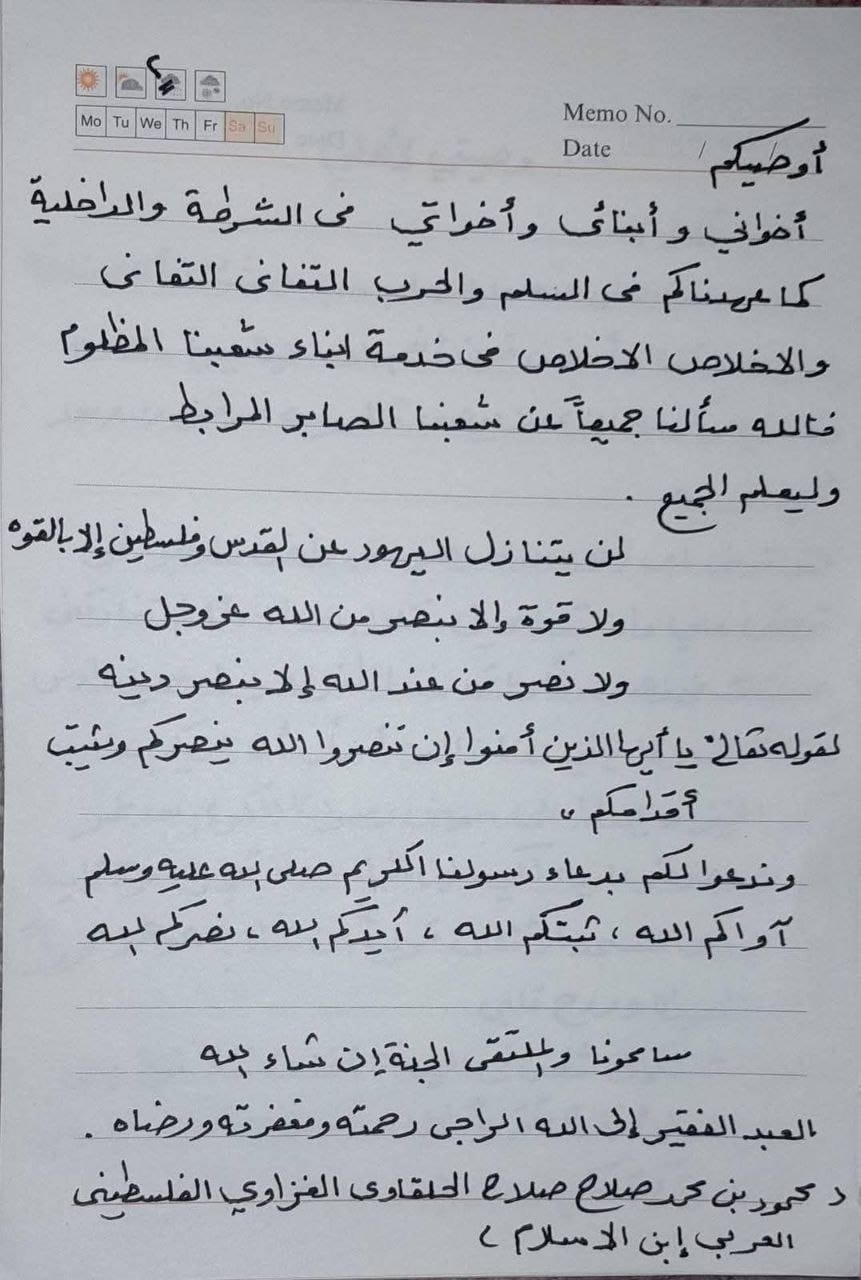 ٢
Mo Tu We Th Fr Sa Su
Memo No.
Date / /
أوصيكم
أخواني وأبنائى وأخواتي فى الشرطة والداخلية
كما عهدناكم فى السلم والحرب التفانى التفانى
والاخلاص الاخلاص فى خدمة ابناء شعبنا المظلوم
فالله سألنا جميعاً عن شعبنا الصابر المرابط
وليعلم الجميع .
لن يتنازل اليهود عن القدس وفلسطين إلا بالقوه
ولا قوة إلا بنصر من الله عز وجل
ولا نصر من عند الله إلا بنصر دينه
لقوله تعالى " يا أيها الذين أمنوا إن تنصروا الله ينصركم ويثبت
أقدامكم "
وندعوا لكم بدعاء رسولنا الكريم صلى الله عليه وسلم
آواكم الله ، ثبتكم الله ، أيدكم الله ، نصركم الله
سامحونا والملتقى الجنة إن شاء الله
العبد الفقير إلى الله الراجى رحمته ومغفرته ورضاه .
د محمود بن محمد صلاح صلاح الحلقاوى الغزاوي الفلسطينى
العربي إبن الاسلام )